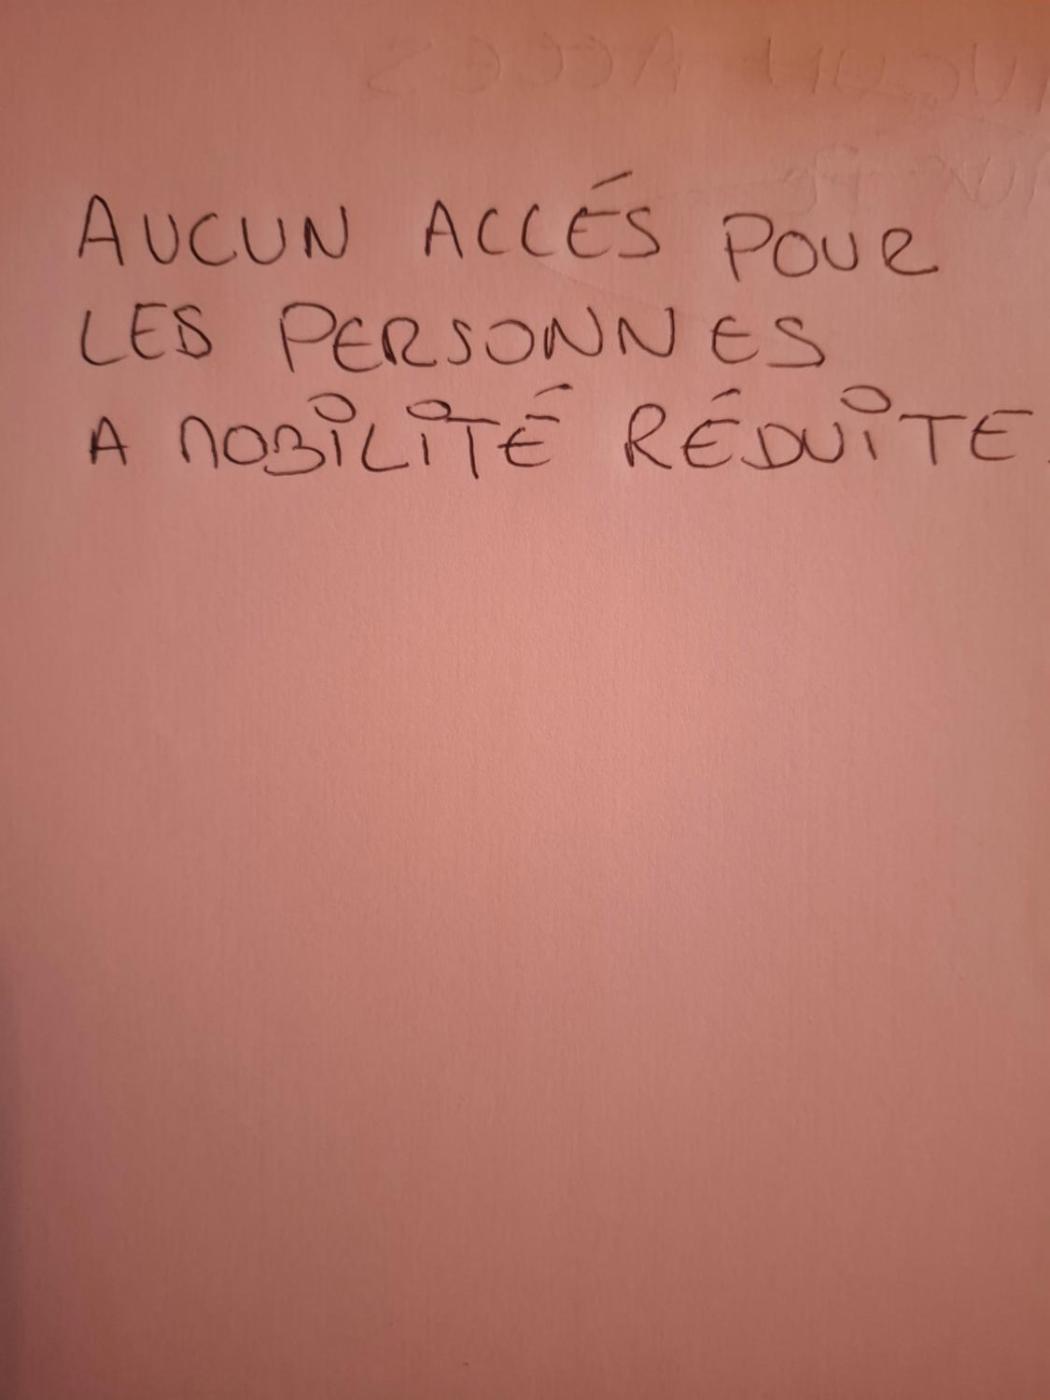 AUCUN ACCÉS POUR
LES PERSONNES
A MOBILITÉ RÉDUITE.